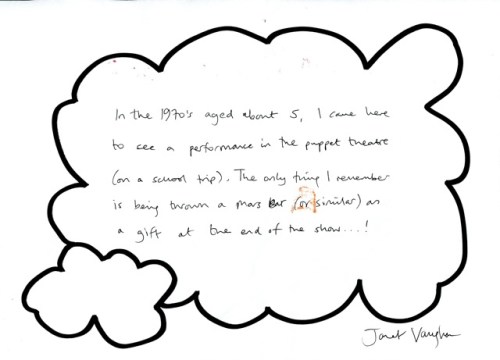 In the 1970's aged about 5, I came here
to see a performance in the puppet theatre
(on a school trip). The only thing I remember
is being thrown a mars bar (or similar) as
a gift at the end of the show...!
Janet Vaughan